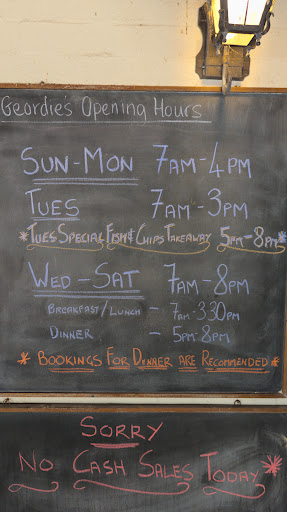 Geordie's Opening Hours
Sun-Mon 7am-4pm
Tues 7am-3pm
*Tues Special Fish & Chips Takeaway 5pm-8pm*
Wed-Sat 7am-8pm
Breakfast/Lunch - 7am-330pm
Dinner - 5pm-8pm
* Bookings For Dinner are Recommended *
Sorry
No Cash Sales Today*